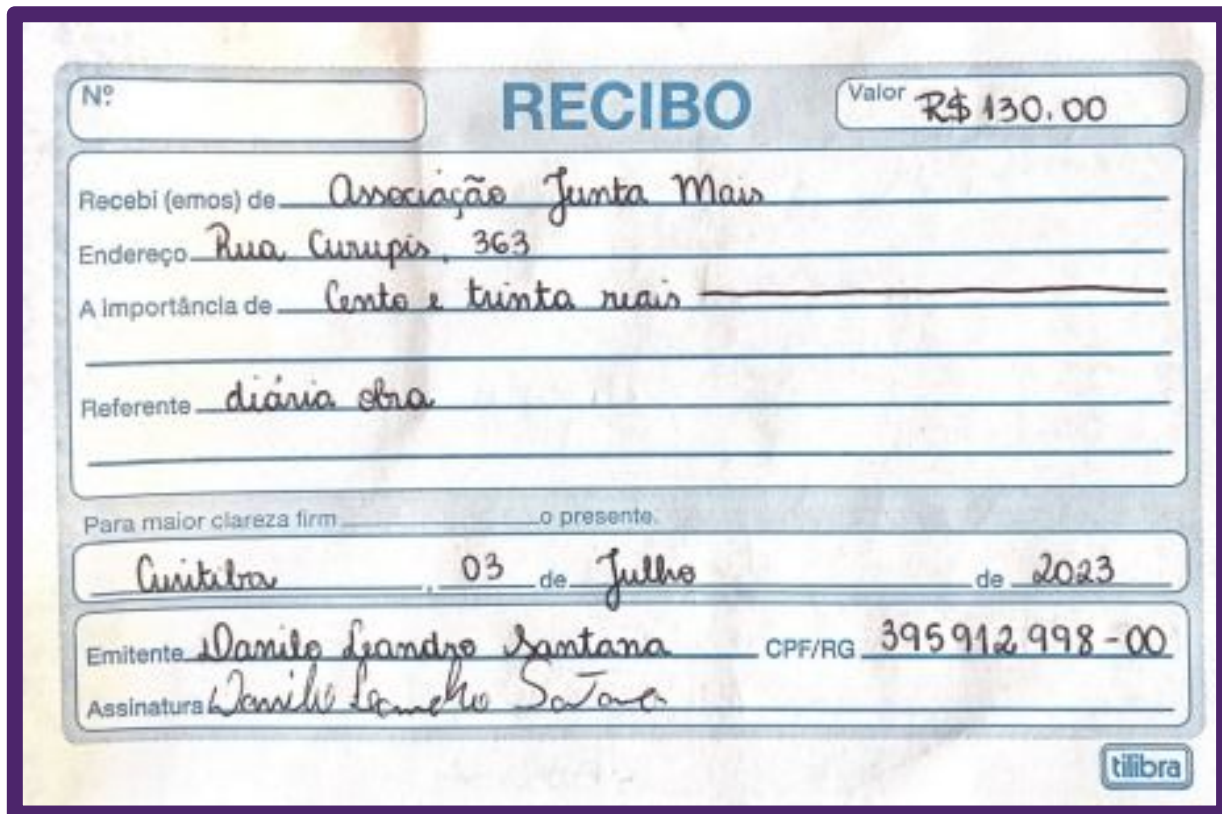 Nº RECIBO Valor R$ 130.00
Recebi (emos) de Associação Junta Mais
Endereço Rua Curupis, 363
A importância de Cento e trinta reais
Referente diária obra
Para maior clareza firm o presente.
Curitiba, 03 de Julho de 2023
Emitente Danilo Leandro Santana CPF/RG 395912998-00
Assinatura Danilo Leandro Santana
tilibra